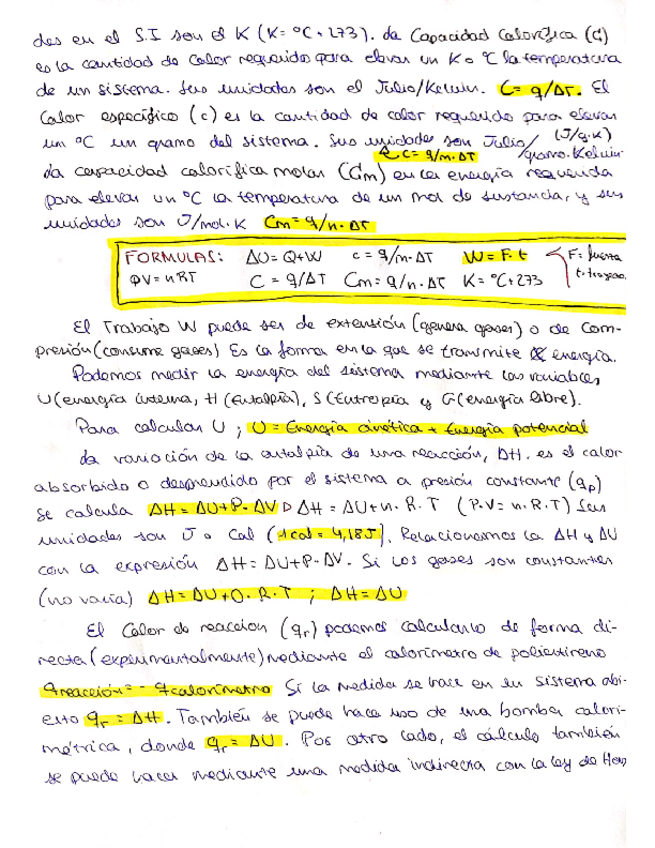 des en el S.I son el K (K= °C + 273). La Capacidad Calorífica (C)
es la cantidad de calor requerido para elevar un K o °C la temperatura
de un sistema. Sus unidades son el Julio/Kelvin. C= q/ΔT. El
Calor específico (c) es la cantidad de calor requerido para elevar
un °C un gramo del sistema. Sus unidades son Julio/gramo.Kelvin (J/g.K)
c = q/m.ΔT
La capacidad calorífica molar (Cm) en la energía requerida
para elevar un °C la temperatura de un mol de sustancia, y sus
unidades son J/mol.K Cm = q/n.ΔT
FORMULAS: ΔU=Q+W c = q/m.ΔT W=F.t F= fuerza
PV=nRT C = q/ΔT Cm=q/n.ΔT K= °C+273 t=trayec.
El Trabajo W puede ser de extensión (genera gases) o de com-
presión (consume gases) Es la forma en la que se transmite energía.
Podemos medir la energía del sistema mediante las variables
U(energía interna, H (Entalpía), S(Entropía y G(energía libre).
Para calcular U ; U = Energía cinética + Energía potencial
La variación de la entalpía de una reacción, ΔH, es el calor
absorbido o desprendido por el sistema a presión constante (qp)
Se calcula ΔH = ΔU+P.ΔV ▷ ΔH = ΔU+n.R.T (P.V= n.R.T) Sus
unidades son J o Cal (1cal = 4,18J). Relacionamos la ΔH y ΔU
con la expresión ΔH= ΔU+P.ΔV. Si los gases son constantes
(no varía) ΔH=ΔU+0.R.T ; ΔH=ΔU
El Calor de reacción (qr) podemos calcularlo de forma di-
recta (experimentalmente) mediante el calorímetro de poliestireno
qreacción= -qcalorímetro Si la medida se hace en un sistema abi-
erto qr = ΔH. También se puede hace uso de una bomba calori-
métrica, donde qr = ΔU. Por otro lado, el cálculo también
se puede hacer mediante una medida indirecta con la ley de Hess